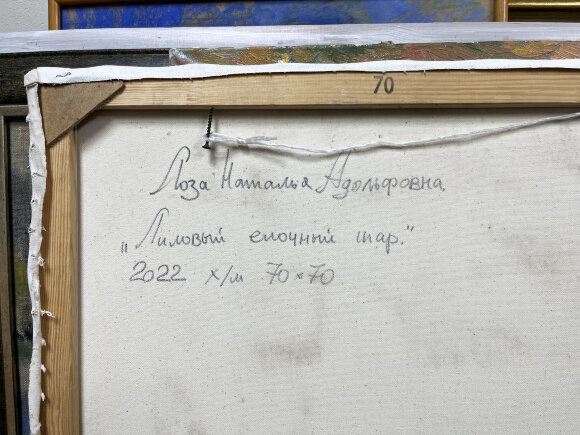 70
Лоза Наталья Адольфовна
„Лиловый елочный шар."
2022 х/м 70×70